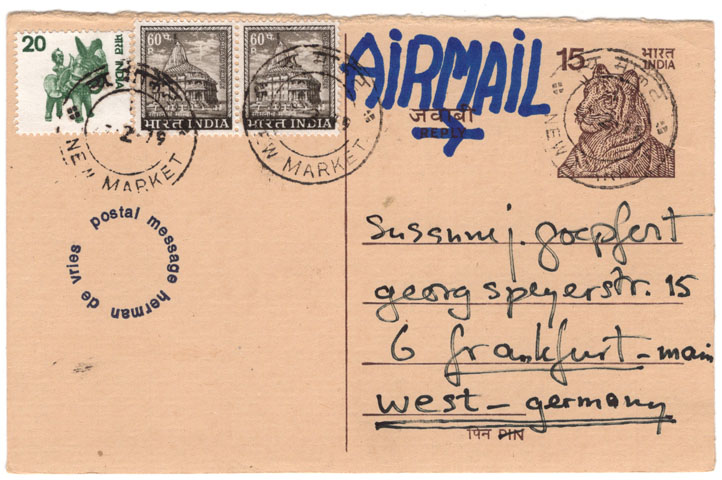 20
भारत INDIA
60 p
भारत INDIA
60 p
भारत INDIA
NEW MARKET
2
NEW MARKET
AIRMAIL
जवाबी
REPLY
15 भारत
INDIA
postal message herman de vries
susanne j. goepfert
georg speyerstr. 15
6 frankfurt-main
west-germany
पिन PIN